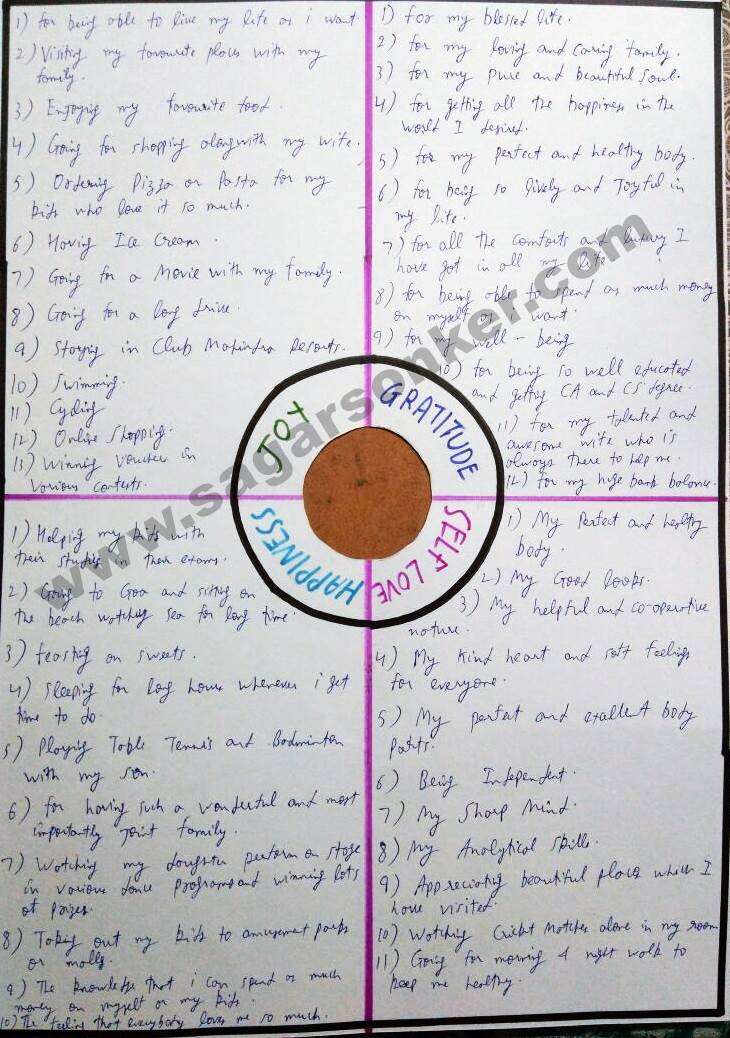 1) for being able to live my life as i want.
2) Visiting my favourite places with my
family.
3) Enjoying my favourite food.
4) Going for shopping alongwith my wife.
5) Ordering Pizza or Pasta for my
kids who love it so much.
6) Having Ice Cream.
7) Going for a Movie with my family.
8) Going for a long drive.
9) Staying in Club Mahindra Resorts.
10) Swimming.
11) Cycling
12) Online Shopping.
13) Winning Vouchers in
various contests.
1) for my blessed life.
2) for my loving and caring family.
3) for my pure and beautiful soul.
4) for getting all the happiness in the
world I desired.
5) for my perfect and healthy body.
6) for being so lively and Joyful in
my life.
7) for all the comforts and luxury I
have got in all my life
8) for being able to spend as much money
on myself as i want.
9) for my well-being
10) for being so well educated
and getting CA and CS degree.
11) for my talented and
awesome wife who is
always there to help me.
12) for my huge bank balance.
JOY
GRATITUDE
HAPPINESS
SELF LOVE
1) Helping my kids with
their studies in their exams.
2) Going to Goa and sitting on
the beach watching sea for long time.
3) feasting on sweets.
4) Sleeping for long hours whenever i get
time to do.
5) Playing Table Tennis and Badminton
with my son.
6) for having such a wonderful and most
importantly joint family.
7) Watching my daughter perform on stage
in various dance programs and winning lots
of prizes.
8) Taking out my kids to amusement parks
or malls.
9) The knowledge that i can spend as much
money on myself or my kids.
10) The feeling that everybody loves me so much.
1) My Perfect and healthy
body.
2) My Good looks.
3) My helpful and co-operative
nature.
4) My kind heart and soft feelings
for everyone.
5) My perfect and excellent body
parts.
6) Being Independent.
7) My Sharp Mind.
8) My Analytical Skills.
9) Appreciating beautiful places which I
have visited.
10) Watching Cricket Matches alone in my room
11) Going for morning & night walk to
keep me healthy.
www.sagarsonker.com